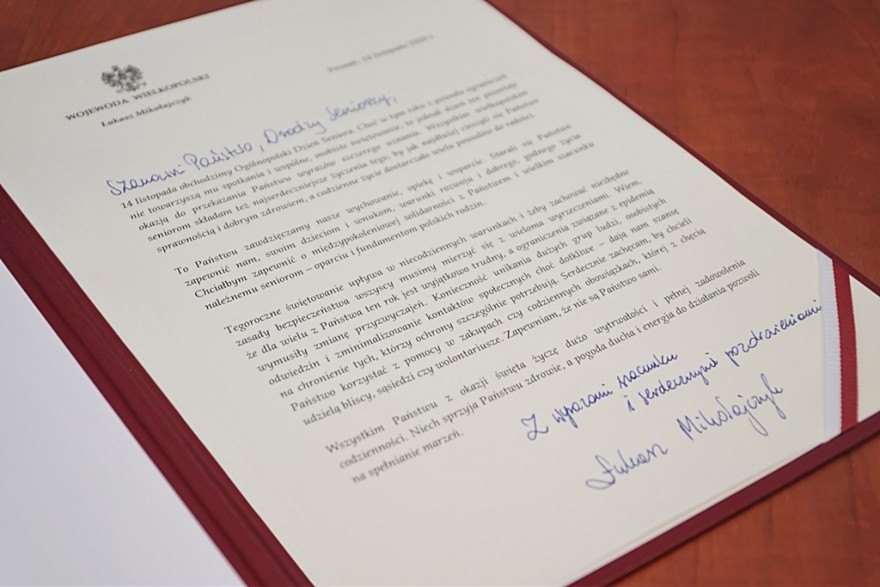 WOJEWODA WIELKOPOLSKI
Łukasz Mikołajczyk
Poznań, 14 listopada 2020 r.
Szanowni Państwo, Drodzy Seniorzy,
14 listopada obchodzimy Ogólnopolski Dzień Seniora. Choć w tym roku z powodu ograniczeń
nie towarzyszą mu spotkania i wspólne, osobiste świętowanie, to jednak dzień ten pozostaje
okazją do przekazania Państwu wyrazów szczerego uznania. Wszystkim wielkopolskim
seniorom składam też najserdeczniejsze życzenia tego, by jak najdłużej cieszyli się Państwo
sprawnością i dobrym zdrowiem, a codzienne życie dostarczało wielu powodów do radości.
To Państwu zawdzięczamy nasze wychowanie, opiekę i wsparcie. Starali się Państwo
zapewnić nam, swoim dzieciom i wnukom, warunki rozwoju i dobrego, godnego życia.
Chciałbym zapewnić o międzypokoleniowej solidarności z Państwem i wielkim szacunku
należnemu seniorom – oparciu i fundamentom polskich rodzin.
Tegoroczne świętowanie upływa w niecodziennych warunkach i żeby zachować niezbędne
zasady bezpieczeństwa wszyscy musimy mierzyć się z wieloma wyrzeczeniami. Wiem,
że dla wielu z Państwa ten rok jest wyjątkowo trudny, a ograniczenia związane z epidemią
wymusiły zmianę przyzwyczajeń. Konieczność unikania dużych grup ludzi, osobistych
odwiedzin i zminimalizowanie kontaktów społecznych choć dotkliwe – dają nam szansę
na chronienie tych, którzy ochrony szczególnie potrzebują. Serdecznie zachęcam, by chcieli
Państwo korzystać z pomocy w zakupach czy codziennych obowiązkach, której z chęcią
udzielą bliscy, sąsiedzi czy wolontariusze. Zapewniam, że nie są Państwo sami.
Wszystkim Państwu z okazji święta życzę dużo wytrwałości i pełnej zadowolenia
codzienności. Niech sprzyja Państwu zdrowie, a pogoda ducha i energia do działania pozwoli
na spełnianie marzeń.
Z wyrazami szacunku
i serdecznymi pozdrowieniami
Łukasz Mikołajczyk